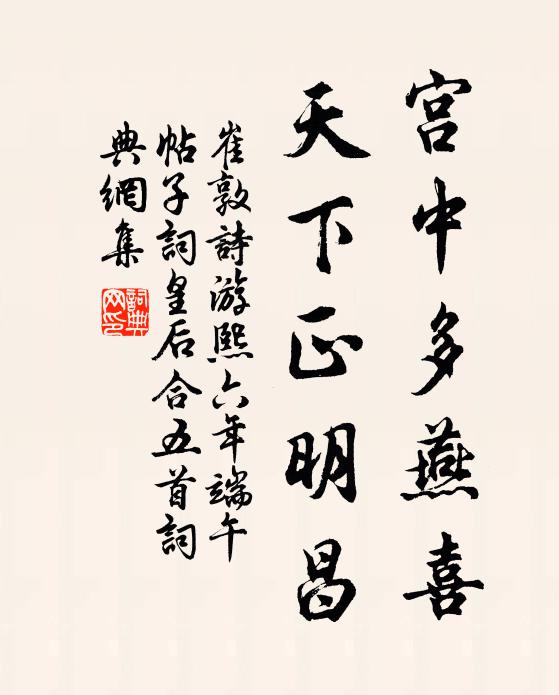 宫中多燕喜
天下正明昌
崔敦詩游熙六年端午
帖子詞皇后合五首詞
典網集
詞典
网印